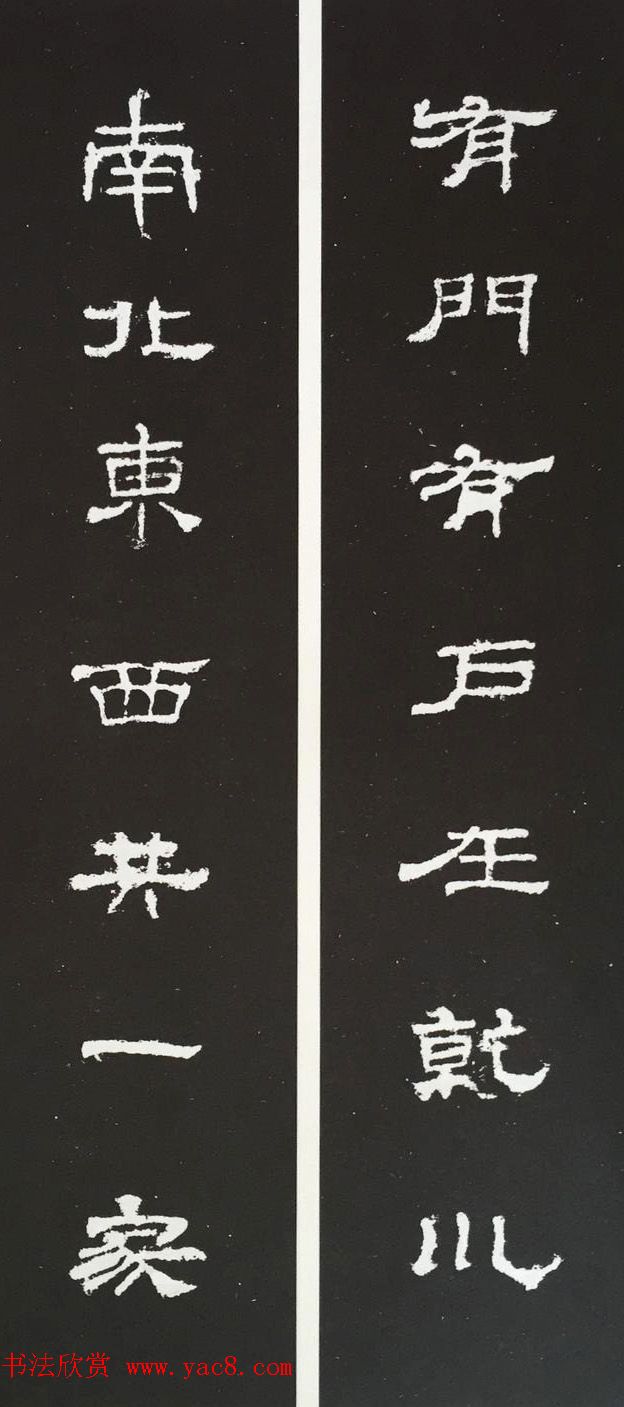 有門有户在乾川
南北東西共一家
书法欣赏 www.yac8.com